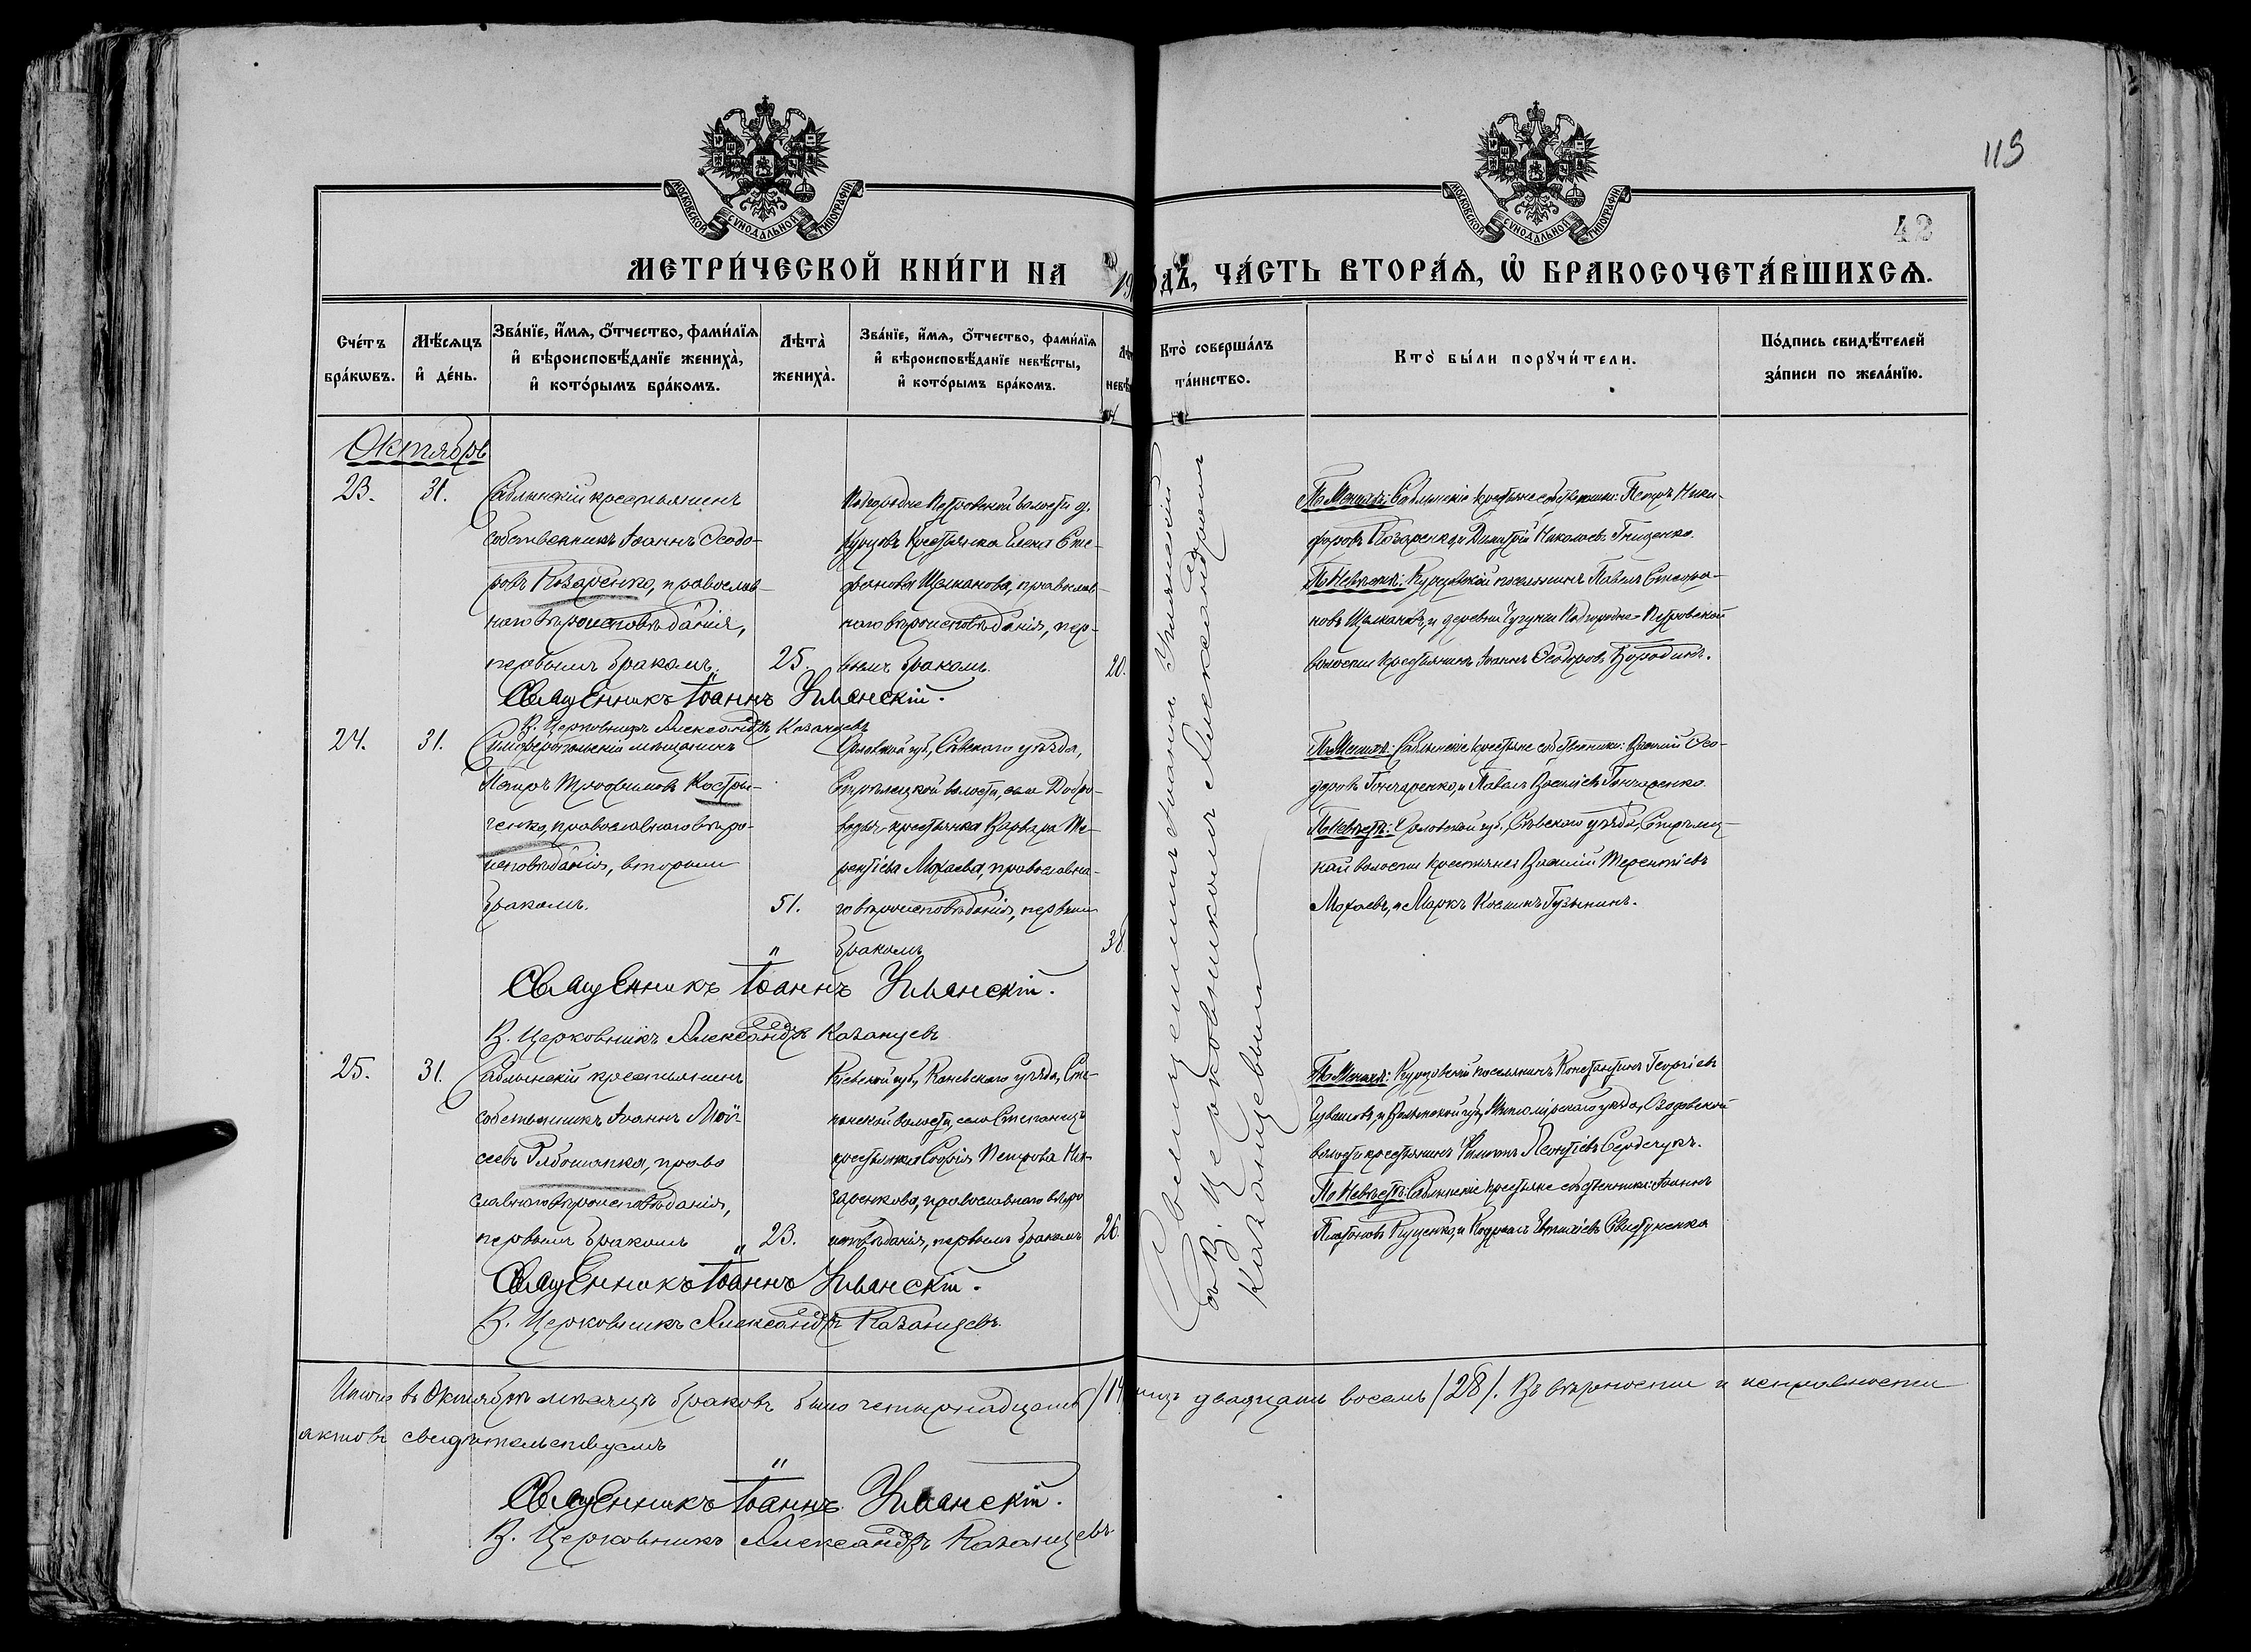 119
42
МОСКОВСКОЙ СѴНОДАЛЬНОЙ ТИПОГРАФІИ
МОСКОВСКОЙ СѴНОДАЛЬНОЙ ТИПОГРАФІИ
МЕТРИ́ЧЕСКОЙ КНИ́ГИ НА 19
ОДЪ, ЧА́СТЬ ВТОРА́Ѧ, Ѡ҆ БРАКОСОЧЕТА́ВШИХСѦ.
Сче́тъ
бра́кѡвъ.
Мѣ́сѧцъ
и҆ де́нь.
Зва́нїе, и҆́мѧ, ѻ҆́тчество, фами́лїѧ
и҆ вѣроисповѣ́данїе жениха̀,
и҆ кото́рымъ бра́комъ.
Лѣта̀
жениха̀.
Зва́нїе, и҆́мѧ, ѻ҆́тчество, фами́лїѧ
и҆ вѣроисповѣ́данїе невѣ́сты,
и҆ кото́рымъ бра́комъ.
Лѣт
невѣ
Кто̀ соверша́лъ
та́инство.
Кто̀ бы́ли порꙋчи́тели.
По́дпись свидѣ́телей
за́писи по жела́нїю.
Октябрь
23.
31.
Саблынскій крестьянинъ
собственникъ Іоаннъ Ѳеодо-
ровъ Назаренко, православ-
наго вѣроисповѣданія,
первымъ бракомъ.
25.
Подгородне Петровской волости д.
Курцовъ крестьянка Елена Сте-
фанова Щелканова, православ-
наго вѣроисповѣданія, пер-
вымъ бракомъ.
20.
По Женихѣ: Саблынскіе крестьяне собственники: Петръ Ники-
форовъ Назаренко, и Димитрій Николаевъ Гнищенко.
По Невѣстѣ: Курцовскій поселянинъ Павелъ Стефа-
новъ Щелкановъ, и деревни Чугунки Подгородне-Петровской
волости крестьянинъ Іоаннъ Ѳеодоровъ Бородинъ.
Священникъ Іоаннъ Уманскій.
В. Церковникъ Александръ Казанцевъ
24.
31.
Симферопольскій мѣщанинъ
Петръ Трофимовъ Костри-
ченко, православнаго вѣро-
исповѣданія, вторымъ
бракомъ.
51.
Орловской губ, Сѣвскаго уѣзда,
Стрѣлецкой волости, села Добро-
водья-крестьянка Варвара Те-
рентіева Мохаева, православна-
го вѣроисповѣданія, первымъ
бракомъ
38.
По Женихѣ: Саблынскіе крестьяне собственники: Василій Ѳео-
доровъ Гончаренко, и Павелъ Василіевъ Гончаренко.
По Невѣстѣ: Орловской губ., Сѣвскаго уѣзда, Стрѣлец-
кой волости крестьяне Василій Терентіевъ
Мохаевъ, и Маркъ Козминъ Гузынинъ.
Священникъ Іоаннъ Уманскій.
В. Церковникъ Александръ Казанцевъ
25.
31.
Саблынскій крестьянинъ
собственникъ Іоаннъ Мой-
сеевъ право
славнаго вѣроисповѣданія,
первымъ бракомъ
23.
Кіевской губ, Каневскаго уѣзда, Сте-
панской волости, село Степанецъ
крестьянка Софія Петрова На-
заренкова, православнаго вѣро
исповѣданія, первымъ бракомъ
26.
По Женихѣ: Курцовскій поселянинъ Константинъ Георгіевъ
Чувашовъ, и Волынской губ, Житомірскаго уѣзда,
волости крестьянинъ Филиппъ Леонтіевъ Сердечукъ.
По Невѣстѣ: Саблынскіе крестьяне собственники: Іоаннъ
Платоновъ Куценко, и Евтихіевъ Свистуненко
Священникъ Іоаннъ Уманскій.
В. Церковникъ Александръ Казанцевъ.
Священникомъ Іоанномъ Уманскимъ
съ В. Церковникомъ Александромъ
Казанцевымъ
Итого въ Октябрѣ мѣсяцѣ браковъ было четырнадцать /14
лицъ двадцать восемь /28/. Въ вѣрности и исправности
актовъ свидѣтельствуемъ
Священникъ Іоаннъ Уманскій.
В. Церковникъ Александръ Казанцевъ